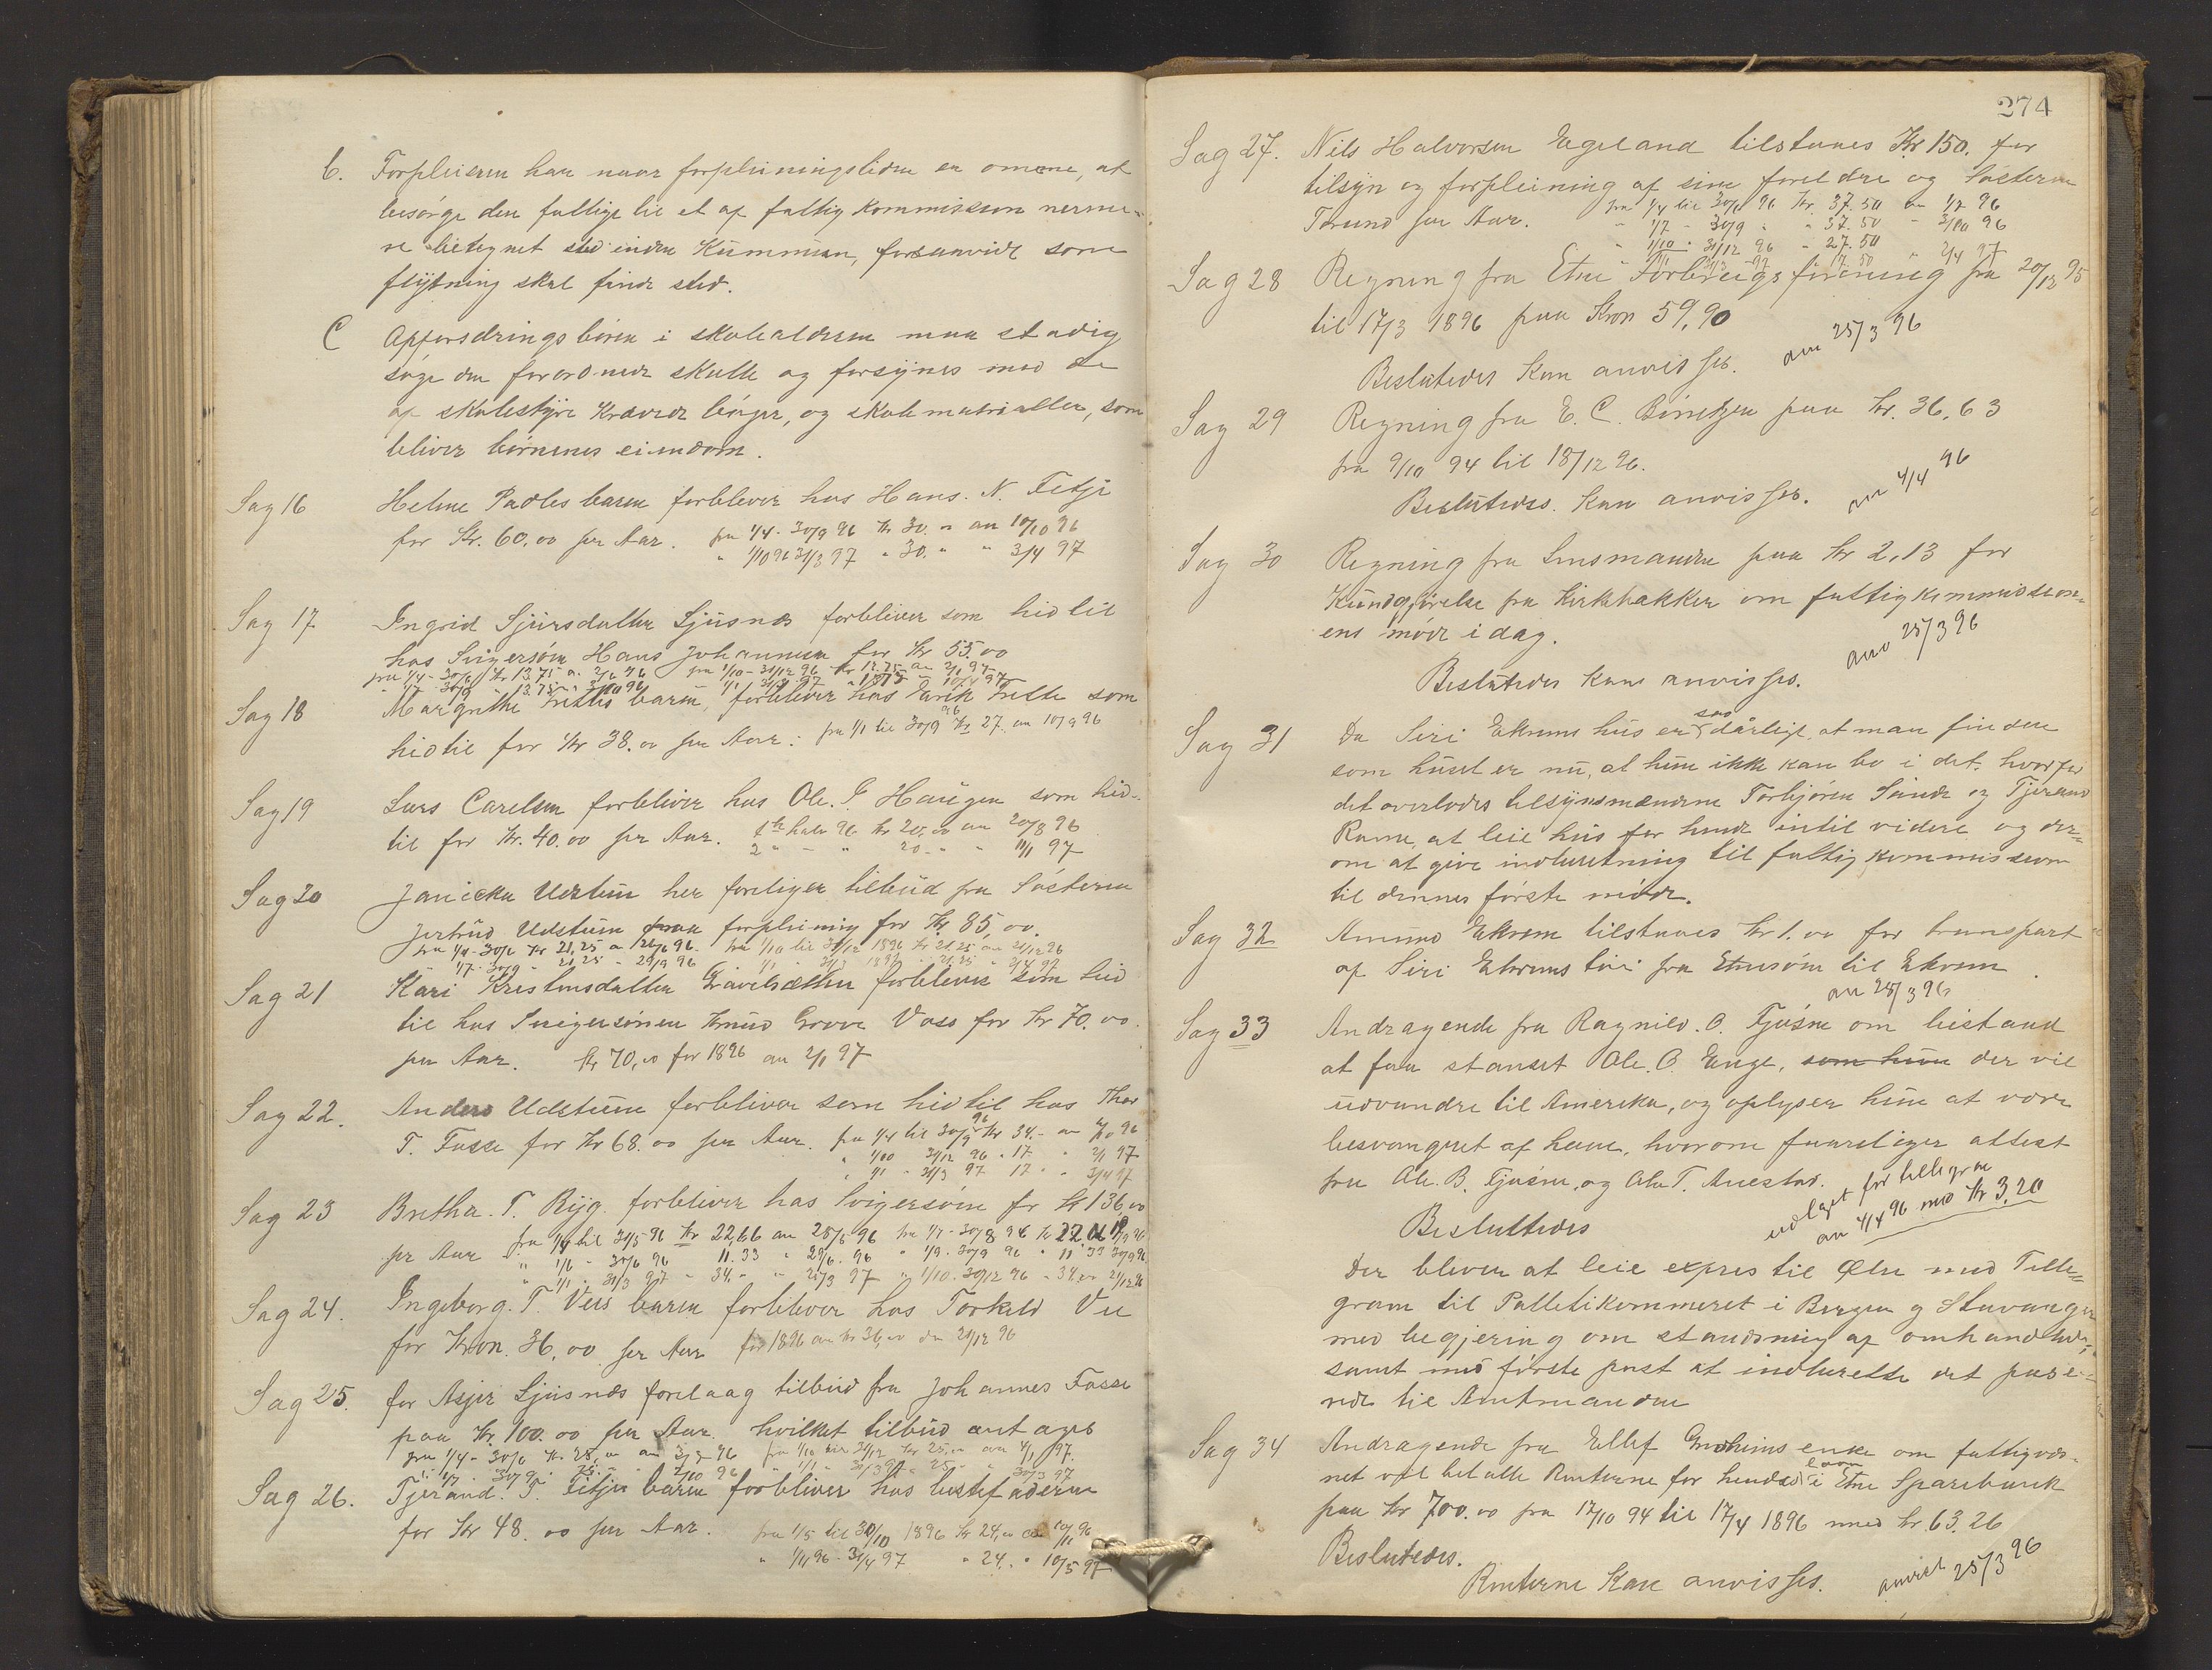 b. Forpleieren har naar forpleiningstiden er omme, at
besörge den fattige til et af fattig Kommissionen nerme-
re betegnet sted inden Kummunen, forsaavidt som
flÿtning skal finde sted.
C Opforsdringsbören i skolealderen maa stadig
söge den forordnede skolle og forsÿnes med de
af skolestÿre Krævede böger, og skolematrialler, som
bliver börnenes eiendom.
Sag 16 Helene Padles barn forblever hos Hans. N. Fetje
for Kr. 60,00 per Aar. fra 1/4 - 30/9 96 Kr 30. " an 10/10 96
" 1/10 96 31/3 97 " 30. " " 3/4 97
Sag 17 Ingrid Sjursdatter Ljusnes forbliver som hid til
hos Svigersön Hans Johannesen for Kr 55.00
fra 1/4 - 30/6 Kr 13.75 a. 2/6 96 fra 1/10 - 31/12 96 Kr 13.75 an 2/1 97
" 1/7 - 30/9 " 13.75 " 3/10 96 1/1 31/3 97
Sag 18 Margrethe Frettes barn, forbliver hos Erik Frette som
hidtil for Kr 38.00 per Aar: fra 1/1 til 30/9 96 Kr 27. an 10/9 96
Sag 19 Lars Carelsen forbliver hos Ole. G Haugen som hid-
til for Kr. 40.00 per Aar. 1te halv 96 Kr 20,00 an 20/8 96
2 " - " 20 - " " 11/1 97
Sag 20 Janicka Udstun her foreligger tilbud fra Sösteren
Jertrud Udstun paa forpleining for Kr 85,00.
fra 1/4 - 30/6 Kr 21,25 a 26/6 96. fra 1/10 til 31/12 1896 Kr 21.25 an 21/12 96
1/7 - 30/9 - 21,25 - 29/9 96 1/1 " 31/3 1897 " 21,25 " 2/4 97
Sag 21 Kari Kristensdatter Gravelsæther forbliver som hid
til hos Sviegersönen Knud Grove Voss for Kr 70.00.
per Aar. Kr 70,00 for 1896 an 2/1 97
Sag 22. Anders Udstun forbliver som hidtil hos Thor
T. Fosse for Kr 68.00 per Aar. fra 1/4 til 30/9 96 Kr 34.- an 96
" 1/10 31/12 96 " 17 " 2/1 97
" 1/1 " 31/3 97 17 " " 3/4 97
Sag 23 Bretha. T. Rÿg. forbliver hos Svigersön for Kr 136,00
pr Aar fra 1/4 til 31/5 96 Kr 22,66 an 28/5 96 fra 1/7 - 30/8 96 Kr 22
" 1/6 - 30/6 96 11.33 " 29/6. 96 " 1/9 - 30/9 96 " 11.33 30/9 96
" 1/1 - 31/3 97 " 34. - " 25/3 97 " 1/10 - 30/12 96 - 34. 21/12 96
Sag 24. Ingeborg. T. Vees barn forbliver hos Torkeld Vee
for Kron. 36,00 per Aar for 1896 an Kr 36,00 den 20/12 96
Sag 25. for Asjer Ljusnes forelaag tilbud fra Johannes Fosse
paa Kr. 100.00 per Aar. hvilket tilbud antages
fra 1/4 - 30/6 Kr. 25,00 an 3/7 96 fra 1/10 til 31/12 Kr 25,00 an 4/1 97.
" 1/7 - 30/9 - 25.- " 2/10 96 " 1/1 - 31/3 97 " 25 - " 30/3 97
Sag 26. Tjerand. T. Fetjes barn forbliver hos bestefaderen
for Kr 48.00 per Aar. fra 1/5 til 31/10 1896 Kr 24,00 an 10/11 96
" 1/11 96 - 31/4 97 " 24. " 10/5 97
274
Sag 27. Nils Halvorsen Egeland tilstaaes Kr 150. for
tilsÿn og forpleining af sine foreldre og Sösteren
Torund per Aar. fra 1/4 til 30/6 96 Kr. 37.50 an 1/7 96
" 1/7 - 30/9 " " 37.50 - 3/10 96
" 1/10 - 31/12 96 " 37.50
1/1 31/3 97 37.50 " 2/4 97
Sag 28 Regning fra Etne Forbrugsforening fra 20/12 95
til 17/3 1896 paa Kron 59,90
Beslutedes Kan anvisses. anv 25/3 96
Sag 29 Regning fra E. C. Börretzen paa Kr. 36,63
fra 9/10 94 til 18/12 96.
Beslutedes. Kan anvisses. anv 4/4 96
Sag 30 Regning fra Lensmanden paa Kr 2,13 for
Kundgjörelse fra Kirkebakken om fattigkommission-
ens möde i dag.
Beslutedes Kan anvisses. anv 25/3 96
Sag 31 Da Siri Ekrens hus er saa dårligt, at man finder
som huset er nu, at hun ikke kan bo i det. hvorfor
det overlodes tilsÿnsmændene Torbjören Sande og Tjerand
Rame, at leie hus for hende intil videre og der=
om at give indberetning til fattigkommissionen
til dennes förste möde.
Sag 32 Amund Ekrene tilstaaes Kr 1.00 for transport
af Siri Ekrens töi fra Etnesöen til Ekren.
an 25/3 96
Sag 33 Andragende fra Ragnild. O. Tjösne om bistand
at faa stanset Ole. O. Enge, som hun der vil
udvandre til Amerika, og oplyser hun at være
besvangret af ham, hvorom foreligger attest
fra Ole. B. Tjösne, og Ole T. Austad.
Besluttedes udlæget for tellegram
an 4/4 96 med Kr 3.20
Der bliver at leie expres til Ølen med Telle=
gram til Pollitikammeret i Bergen og Stavanger
med begjering om standsning af omhandlede,
samt med förste post at indberette det passe-
rede til Amtmanden
Sag 34 Andragende fra Ellef Grindheims enke om fattigvæs-
net vil betalle Renterne for hendes laan i Etne Sparebank
paa Kr 700.00 fra 17/10 94 til 17/4 1896 med Kr. 63.26
Beslutedes.
Renterne Kan anvisses. anvist 25/3 96